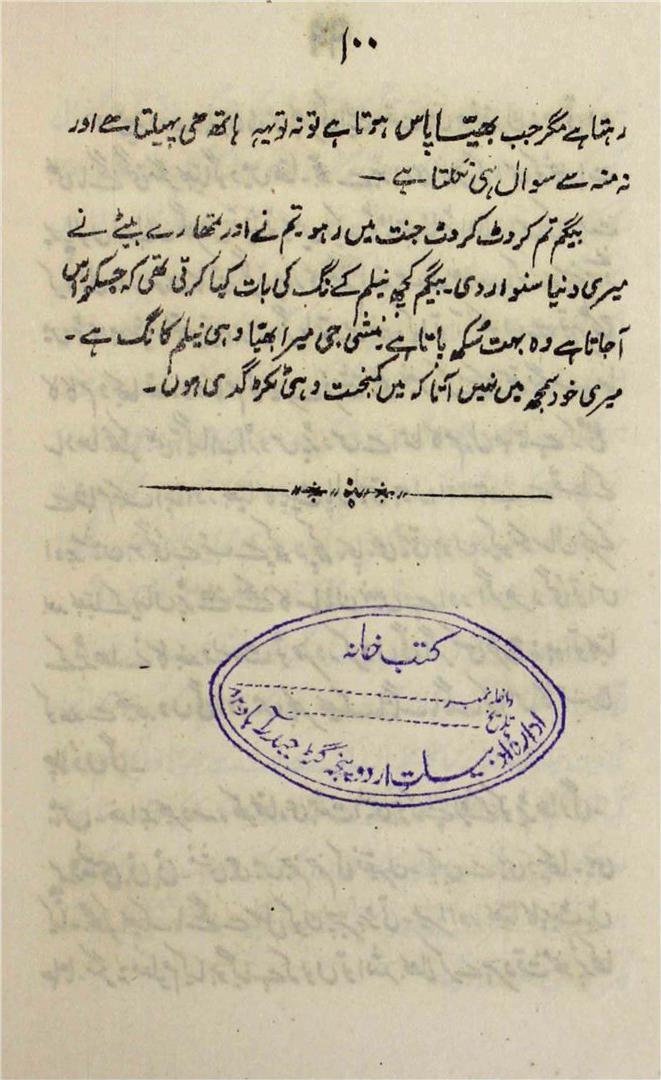 ۱۰۰
رہتا ہے مگر جب بھیّا پاس ہوتا ہے تو نہ تو یہہ ہاتھ ھی پھیلتا ھے اور
نہ منہ سے سوال ہی نکلتا ہے —
بیگم تم کروٹ کروٹ جنت میں رہو۔ تم نے اور تمھارے بیٹے نے
میری دنیا سنوار دی۔ بیگم کچھ نیلم کے نگ کی بات کہا کرتی تھی کہ جسکو راس
آجاتا ہے وہ بہت سُکھ پاتا ہے۔ منشی جی میرا بھیّا وہی نیلم کا نگ ہے۔
میری خود سمجھ میں نہیں آتا کہ میں کمبخت وہی ٹکڑ گدی ہوں۔
کتب خانہ
داخلہ نمبر
تاریخ
ادارہ ادبیات اردو پنجہ گٹہ حیدرآباد ۸۲